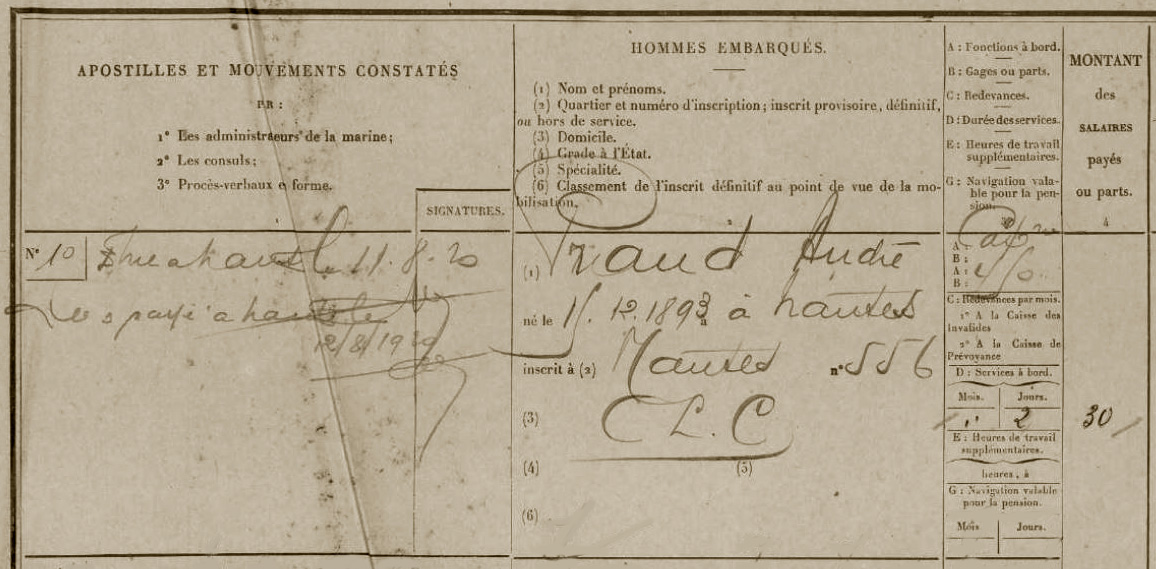 APOSTILLES ET MOUVEMENTS CONSTATÉS
PR :
1° Les administrateurs de la marine;
2° Les consuls;
3° Procès-verbaux e forme.
SIGNATURES.
HOMMES EMBARQUÉS.
(1) Nom et prénoms.
(2) Quartier et numéro d'inscription; inscrit provisoire, définitif,
ou hors de service.
(3) Domicile.
(4) Grade à l'État.
(5) Spécialité.
(6) Classement de l'inscrit définitif au point de vue de la mo-
bilisation.
2
A : Fonctions à bord.
B : Gages ou parts.
C : Redevances.
D : Durée des services.
E : Heures de travail
supplémentaires.
G : Navigation vala-
ble pour la pen-
sion.
MONTANT
des
SALAIRES
payés
ou parts.
4
N° 10
11.8.20
payé à
12/8/1920
(1) Praud André
né le 15.12.1893 à à Nantes
inscrit à (2) Nantes n° 556
(3) C L. C
(4) (5)
(6)
A :
B :
A :
B :
C : Redevances par mois.
1° A la Caisse des
Invalides
2° A la Caisse de
Prévoyance
D : Services à bord.
Mois. Jours.
" 2
30
E : Heures de travail
supplémentaires.
heures, à
G : Navigation valable
pour la pension.
Mois Jours.